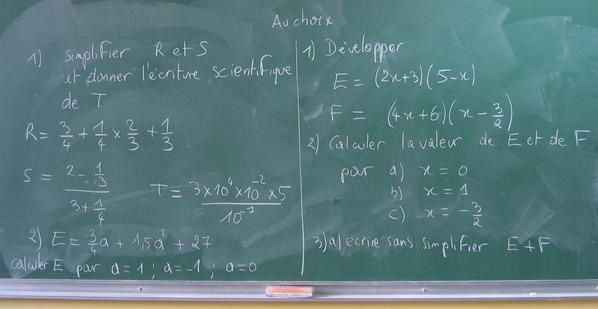 Au choix
1) Simplifier R et S
et donner l'écriture scientifique
de T
R = 3/4 + 1/4 × 2/3 + 1/3
S = (2 - 1/3) / (3 + 1/4)
T = (3 × 10⁴ × 10⁻² × 5) / 10⁻⁷
2) E = 3/4 a + 1,5a² + 27
calculer E par a = 1 ; a = -1 ; a = 0
1) Développer
E = (2x+3)(5-x)
F = (4x+6)(x - 3/2)
2) Calculer la valeur de E et de F
par a) x = 0
b) x = 1
c) x = -3/2
3) a) écrire sans simplifier E + F